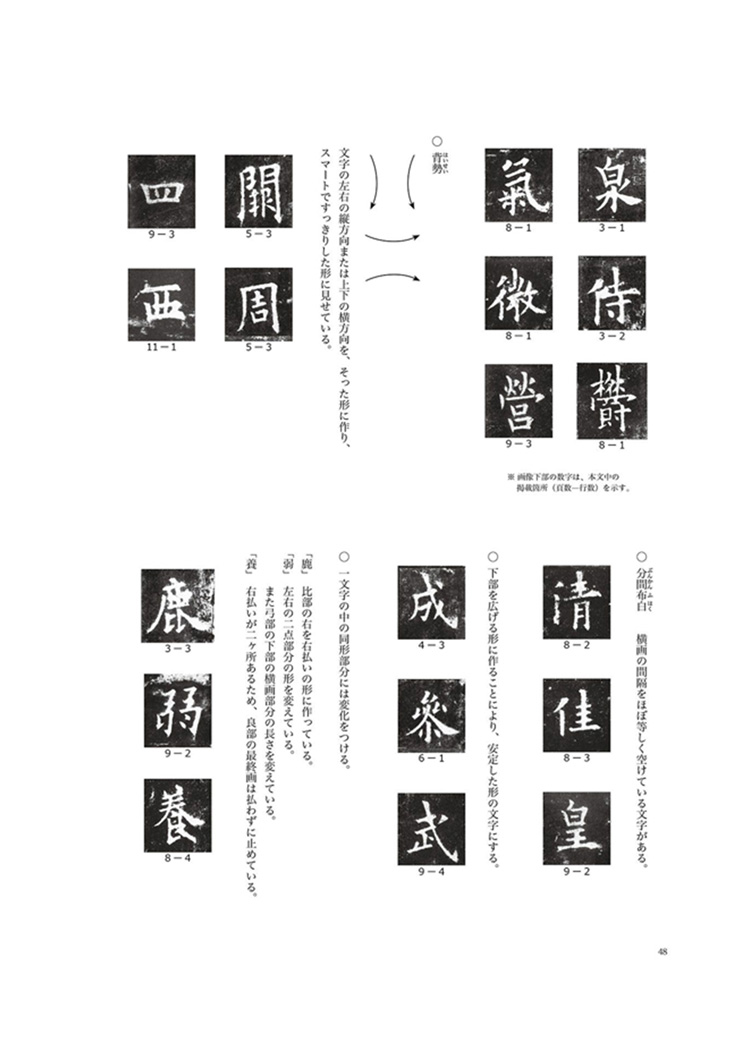 泉
3－1
侍
3－2
欝
8－1
氣
8－1
微
8－1
營
9－3
※画像下部の数字は、本文中の
掲載箇所（頁数―行数）を示す。
○ 背勢
はいせい
文字の左右の縦方向または上下の横方向を、そった形に作り、
スマートですっきりした形に見せている。
關
5－3
周
5－3
四
9－3
西
11－1
○ 分間布白　横画の間隔をほぼ等しく空けている文字がある。
ぶんかんふはく
清
8－2
佳
8－3
皇
9－2
○ 下部を広げる形に作ることにより、安定した形の文字にする。
成
4－3
參
6－1
武
9－4
○ 一文字の中の同形部分には変化をつける。
「鹿」　比部の右を右払いの形に作っている。
「弱」　左右の二点部分の形を変えている。
また弓部の下部の横画部分の長さを変えている。
「養」　右払いが二ヶ所あるため、良部の最終画は払わずに止めている。
鹿
3－3
弱
9－2
養
8－4
48